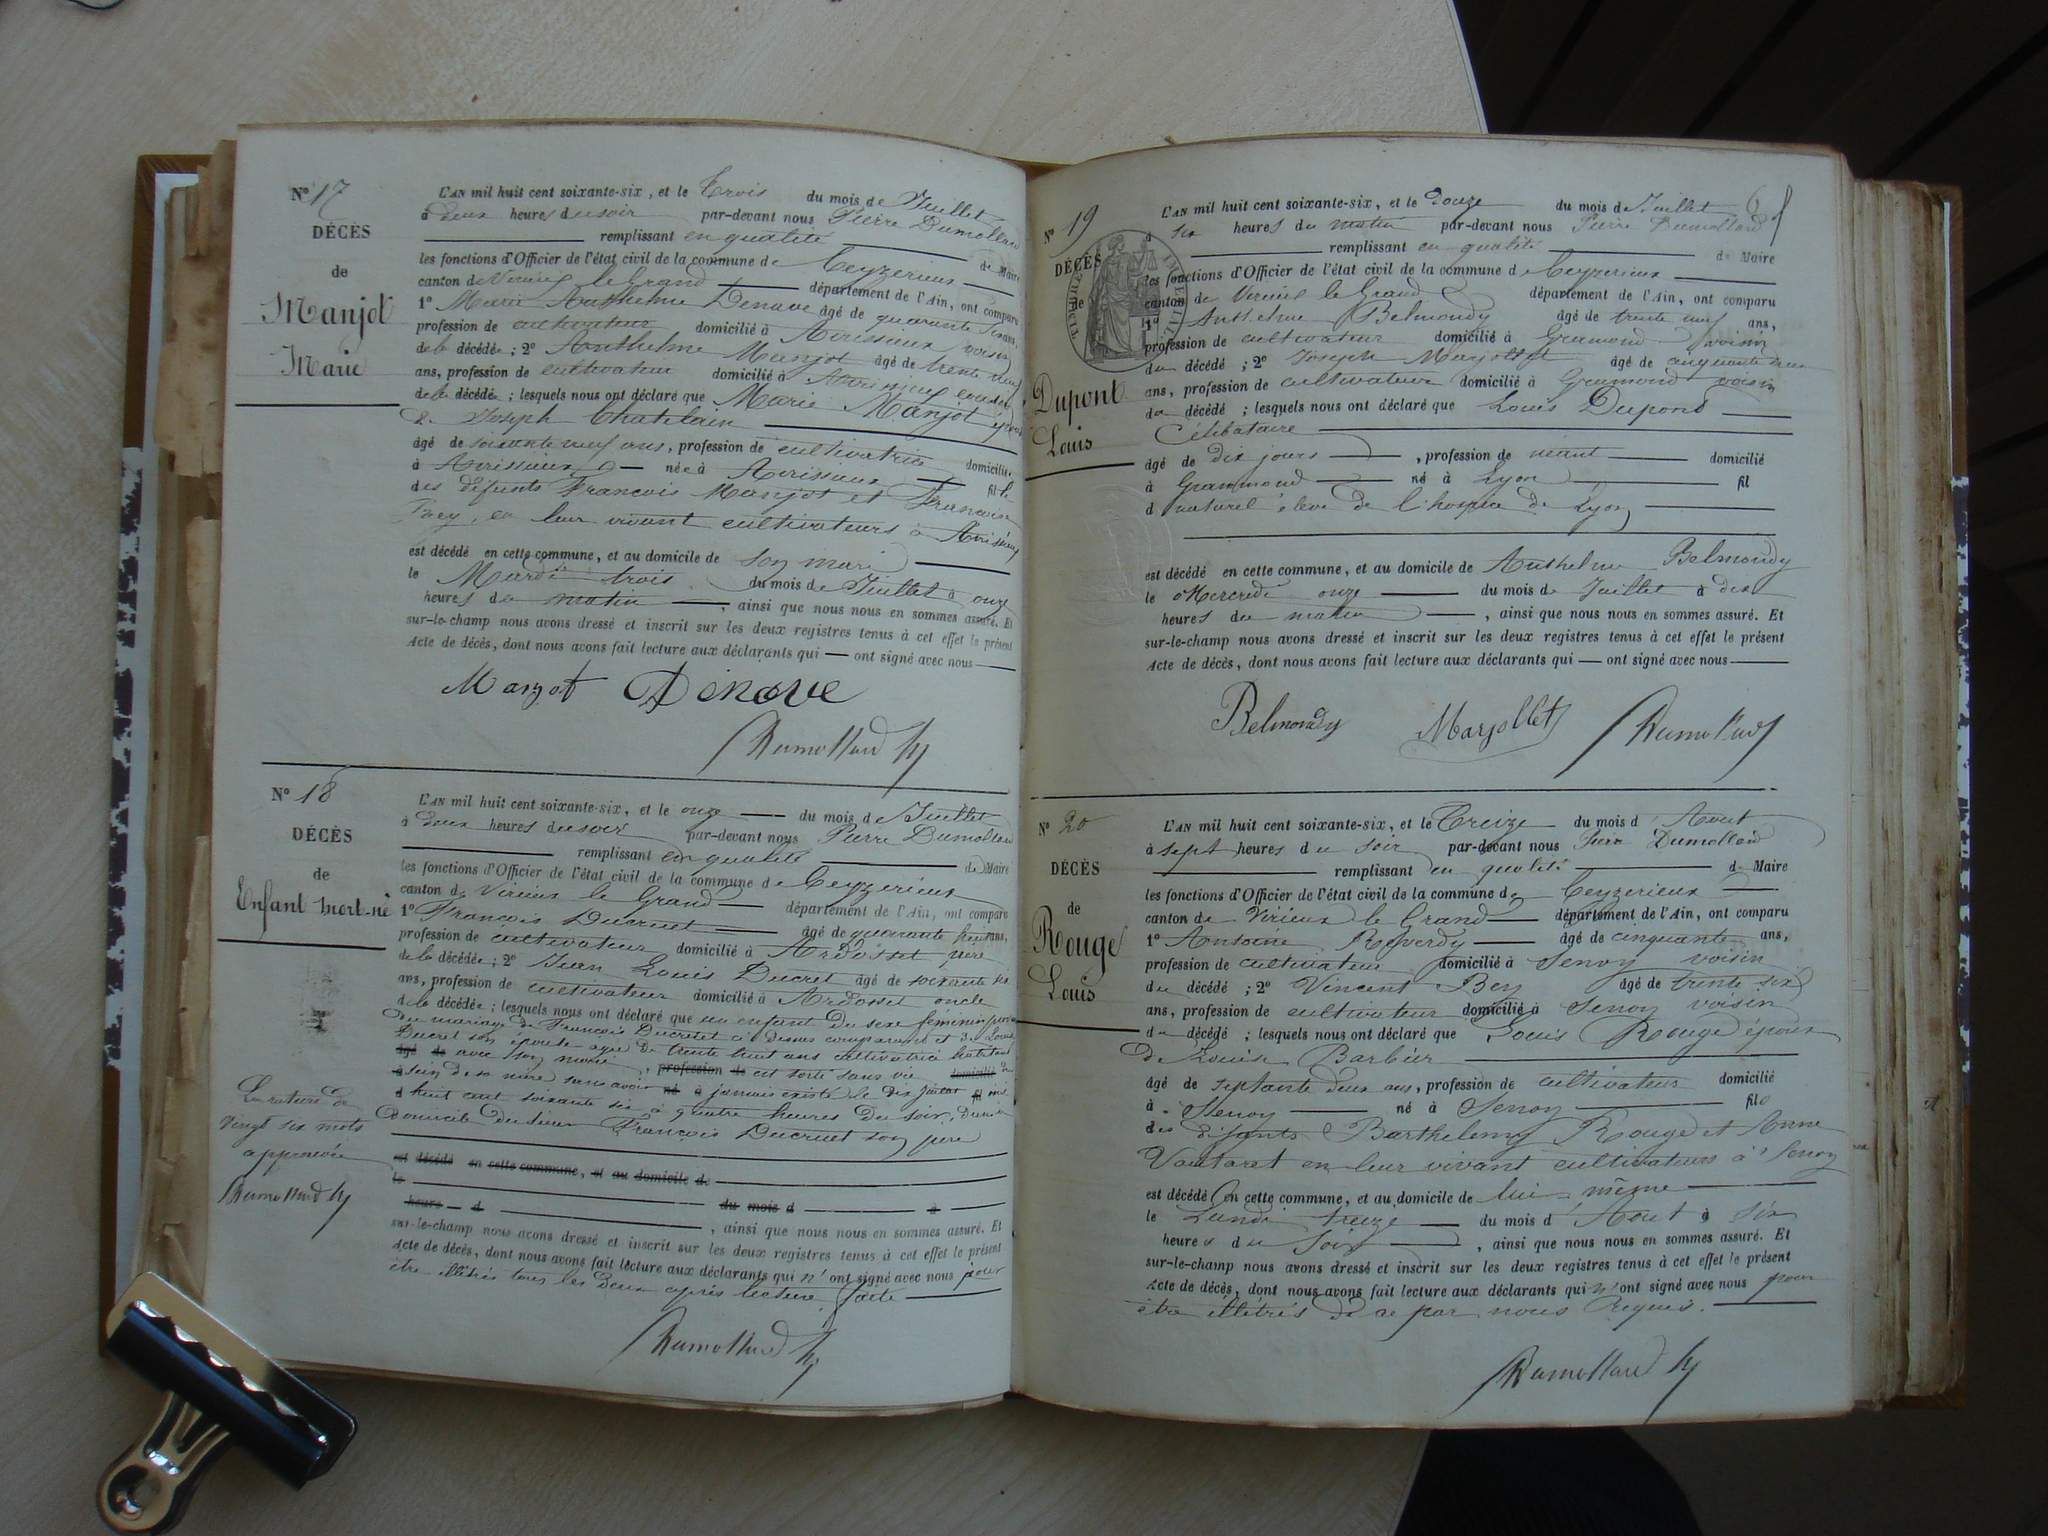 N° 17
DÉCÈS
de
Manjot
Marie
L'AN mil huit cent soixante-six, et le Trois du mois de Juillet
à deux heures du soir par-devant nous Pierre Dumollard
remplissant en qualité de Maire
les fonctions d'Officier de l'état civil de la commune de Ceyzerieux
canton de Virieux le Grand département de l'Ain, ont comparu
1° Marie Anthelme Denave âgé de quarante ans,
profession de cultivateur domicilié à Avrissieux voisin
de la décédée ; 2° Anthelme Manjot âgé de trente neuf
ans, profession de cultivateur domicilié à Avrissieux cousin
de la décédée ; lesquels nous ont déclaré que Marie Manjot épouse
de Joseph Chatelain
âgé de soixante neuf ans, profession de cultivatrice domiciliée
à Avrissieux née à Avrissieux fille
des défunts François Manjot et Françoise
Bey, en leur vivant cultivateurs à Avrissieux
est décédé en cette commune, et au domicile de son mari
le Mardi trois du mois de Juillet à onze
heures du matin, ainsi que nous nous en sommes assuré. Et
sur-le-champ nous avons dressé et inscrit sur les deux registres tenus à cet effet le présent
Acte de décès, dont nous avons fait lecture aux déclarants qui — ont signé avec nous
Manjot Denave
Dumollard
N° 18
DÉCÈS
de
Enfant mort-né
L'AN mil huit cent soixante-six, et le onze du mois de Juillet
à deux heures du soir par-devant nous Pierre Dumollard
remplissant en qualité de Maire
les fonctions d'Officier de l'état civil de la commune de Ceyzerieux
canton de Virieux le Grand département de l'Ain, ont comparu
1° François Ducruet âgé de quarante huit ans,
profession de cultivateur domicilié à Ardosset père
de la décédée ; 2° Jean Louis Ducret âgé de soixante six
ans, profession de cultivateur domicilié à Ardosset oncle
de la décédée ; lesquels nous ont déclaré que un enfant du sexe féminin
du mariage de François Ducruet ci dessus comparant et de Louise
Ducret son épouse agée de trente huit ans cultivatrice habitant
âgé de avec son mari, profession de est sorti sans vie domicilié du
à sein de sa mère sans avoir né à jamais existé le dix juillet fil mil
d huit cent soixante six à quatre heures du soir, dans le
domicile du sieur François Ducruet son père
est décédé en cette commune, et au domicile de
le
heure d du mois d à
, ainsi que nous nous en sommes assuré. Et
sur-le-champ nous avons dressé et inscrit sur les deux registres tenus à cet effet le présent
Acte de décès, dont nous avons fait lecture aux déclarants qui n'ont signé avec nous pour
être illétrés tous les deux après lecture faite
Dumollard
La rature de
vingt six mots
approuvée
Dumollard
N° 19
DÉCÈS
de
Dupont
Louis
L'AN mil huit cent soixante-six, et le douze du mois de Juillet
à six heures du matin par-devant nous Pierre Dumollard
remplissant en qualité de Maire
les fonctions d'Officier de l'état civil de la commune de Ceyzerieux
canton de Virieu le Grand département de l'Ain, ont comparu
1° Anthelme Belmondy âgé de trente neuf ans,
profession de cultivateur domicilié à Gramond voisin
du décédé ; 2° Joseph Marjollet âgé de cinquante deux
ans, profession de cultivateur domicilié à Gramond voisin
du décédé ; lesquels nous ont déclaré que Louis Dupond
Célibataire
âgé de dix jours, profession de néant domicilié
à Grammond né à Lyon fil
d naturel élève de l'hospice de Lyon
est décédé en cette commune, et au domicile de Anthelme Belmondy
le Mercredi onze du mois de Juillet à dix
heures du matin, ainsi que nous nous en sommes assuré. Et
sur-le-champ nous avons dressé et inscrit sur les deux registres tenus à cet effet le présent
Acte de décès, dont nous avons fait lecture aux déclarants qui — ont signé avec nous
Belmondy Marjollet Dumollard
N° 20
DÉCÈS
de
Rouge
Louis
L'AN mil huit cent soixante-six, et le Treize du mois d'Aout
à sept heures du soir par-devant nous Pierre Dumollard
remplissant en qualité de Maire
les fonctions d'Officier de l'état civil de la commune de Ceyzerieux
canton de Virieux le Grand département de l'Ain, ont comparu
1° Antoine Reverdy âgé de cinquante ans,
profession de cultivateur domicilié à Senoy voisin
du décédé ; 2° Vincent Bey âgé de trente six
ans, profession de cultivateur domicilié à Senoy voisin
du décédé ; lesquels nous ont déclaré que Louis Rouge époux
de Louise Barbier
âgé de septante deux ans, profession de cultivateur domicilié
à Senoy né à Senoy fils
des défunts Barthelemy Rouge et Anne
Vautaret en leur vivant cultivateurs à Senoy
est décédé en cette commune, et au domicile de lui même
le Lundi treize du mois d'Aout à six
heures du soir, ainsi que nous nous en sommes assuré. Et
sur-le-champ nous avons dressé et inscrit sur les deux registres tenus à cet effet le présent
Acte de décès, dont nous avons fait lecture aux déclarants qui n'ont signé avec nous pour
être illétrés de ce par nous requis.
Dumollard